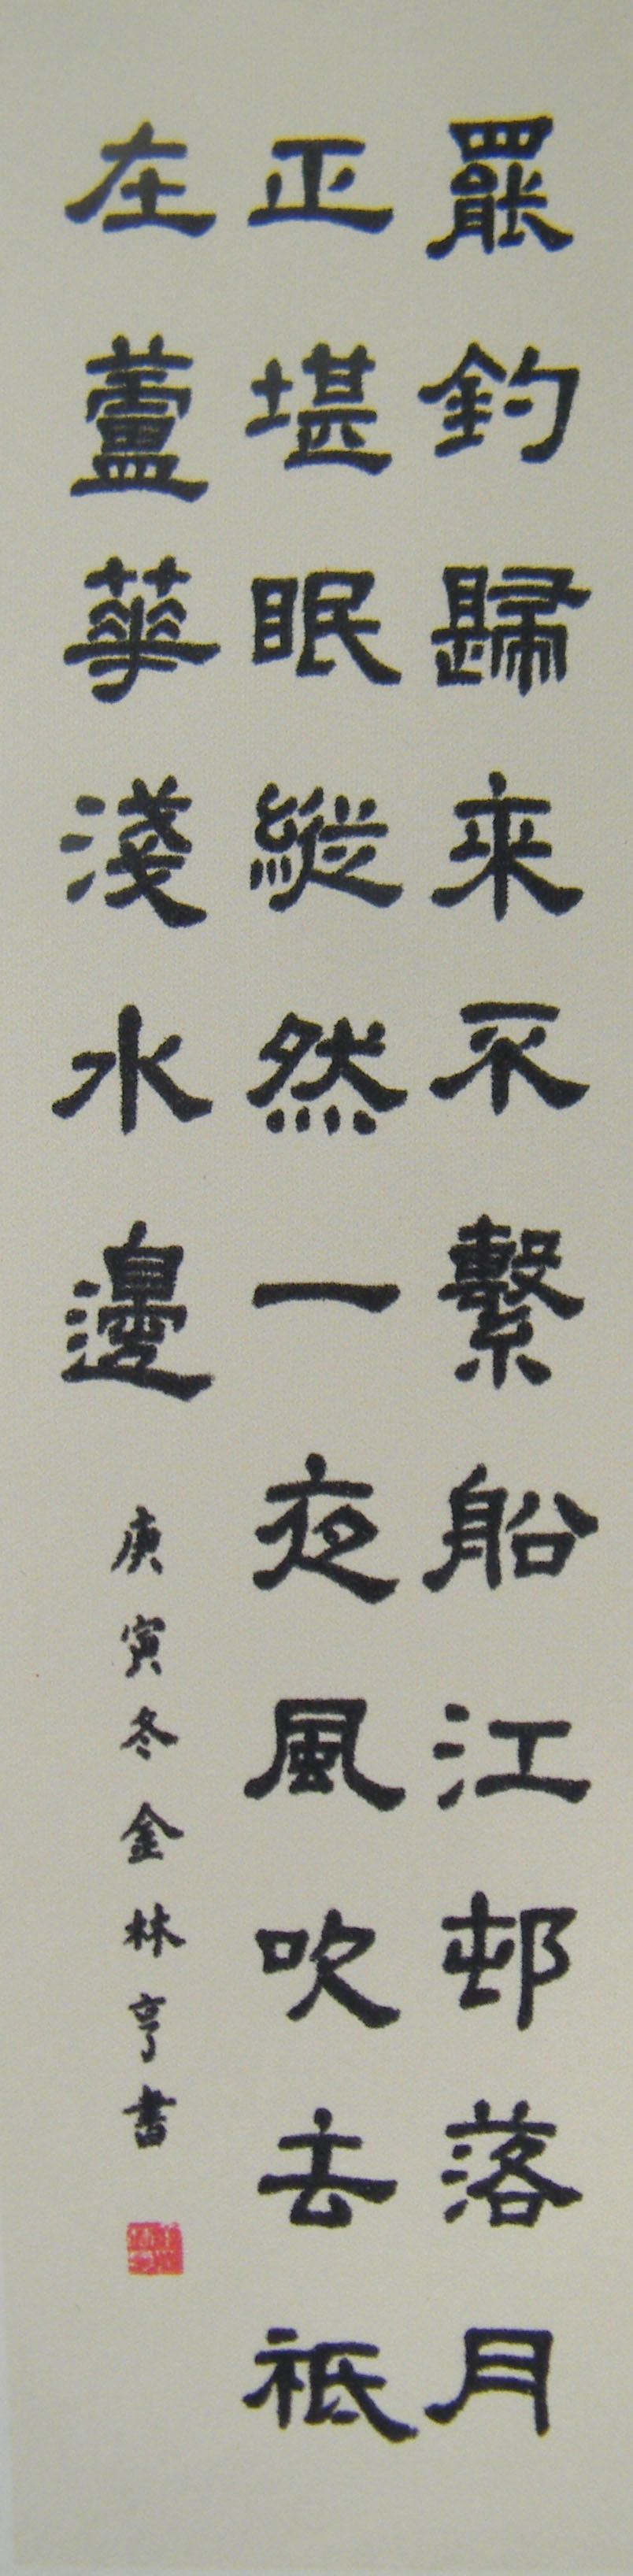 罷釣歸來不繫船江邨落月
正堪眠縱然一夜風吹去祗
在蘆華淺水邊
庚寅冬金林亨書